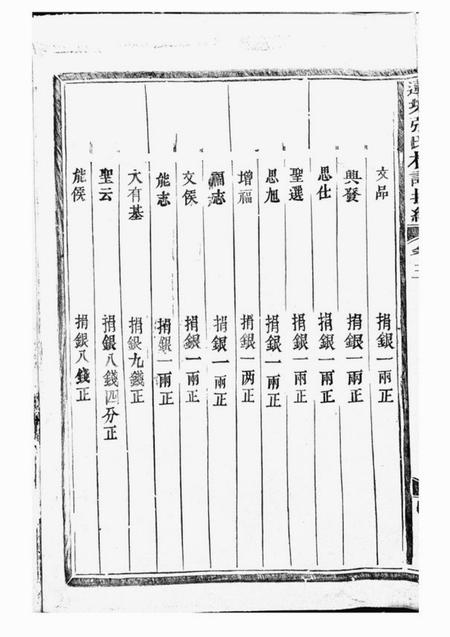 文品 捐銀一兩正
興發 捐銀一兩正
思仕 捐銀一兩正
聖選 捐銀一兩正
思旭 捐銀一兩正
增福 捐銀一两正
福志 捐銀一兩正
文俟 捐銀一兩正
能志 捐銀一兩正
大有基 捐銀九錢正
聖云 捐銀八錢四分正
能俟 捐銀八錢正